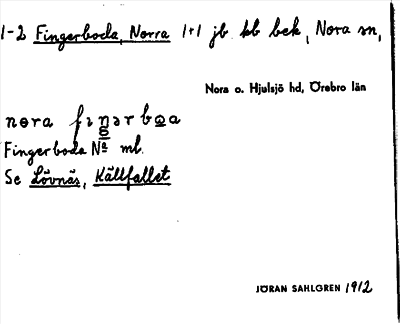 1-2 Fingerboda, Norra 1+1 jb kb bek, Nora sn,
Nora o. Hjulsjö hd, Örebro län
Fingerboda Nª ml.
Se Lövnäs, Källfallet
JÖRAN SAHLGREN 1912